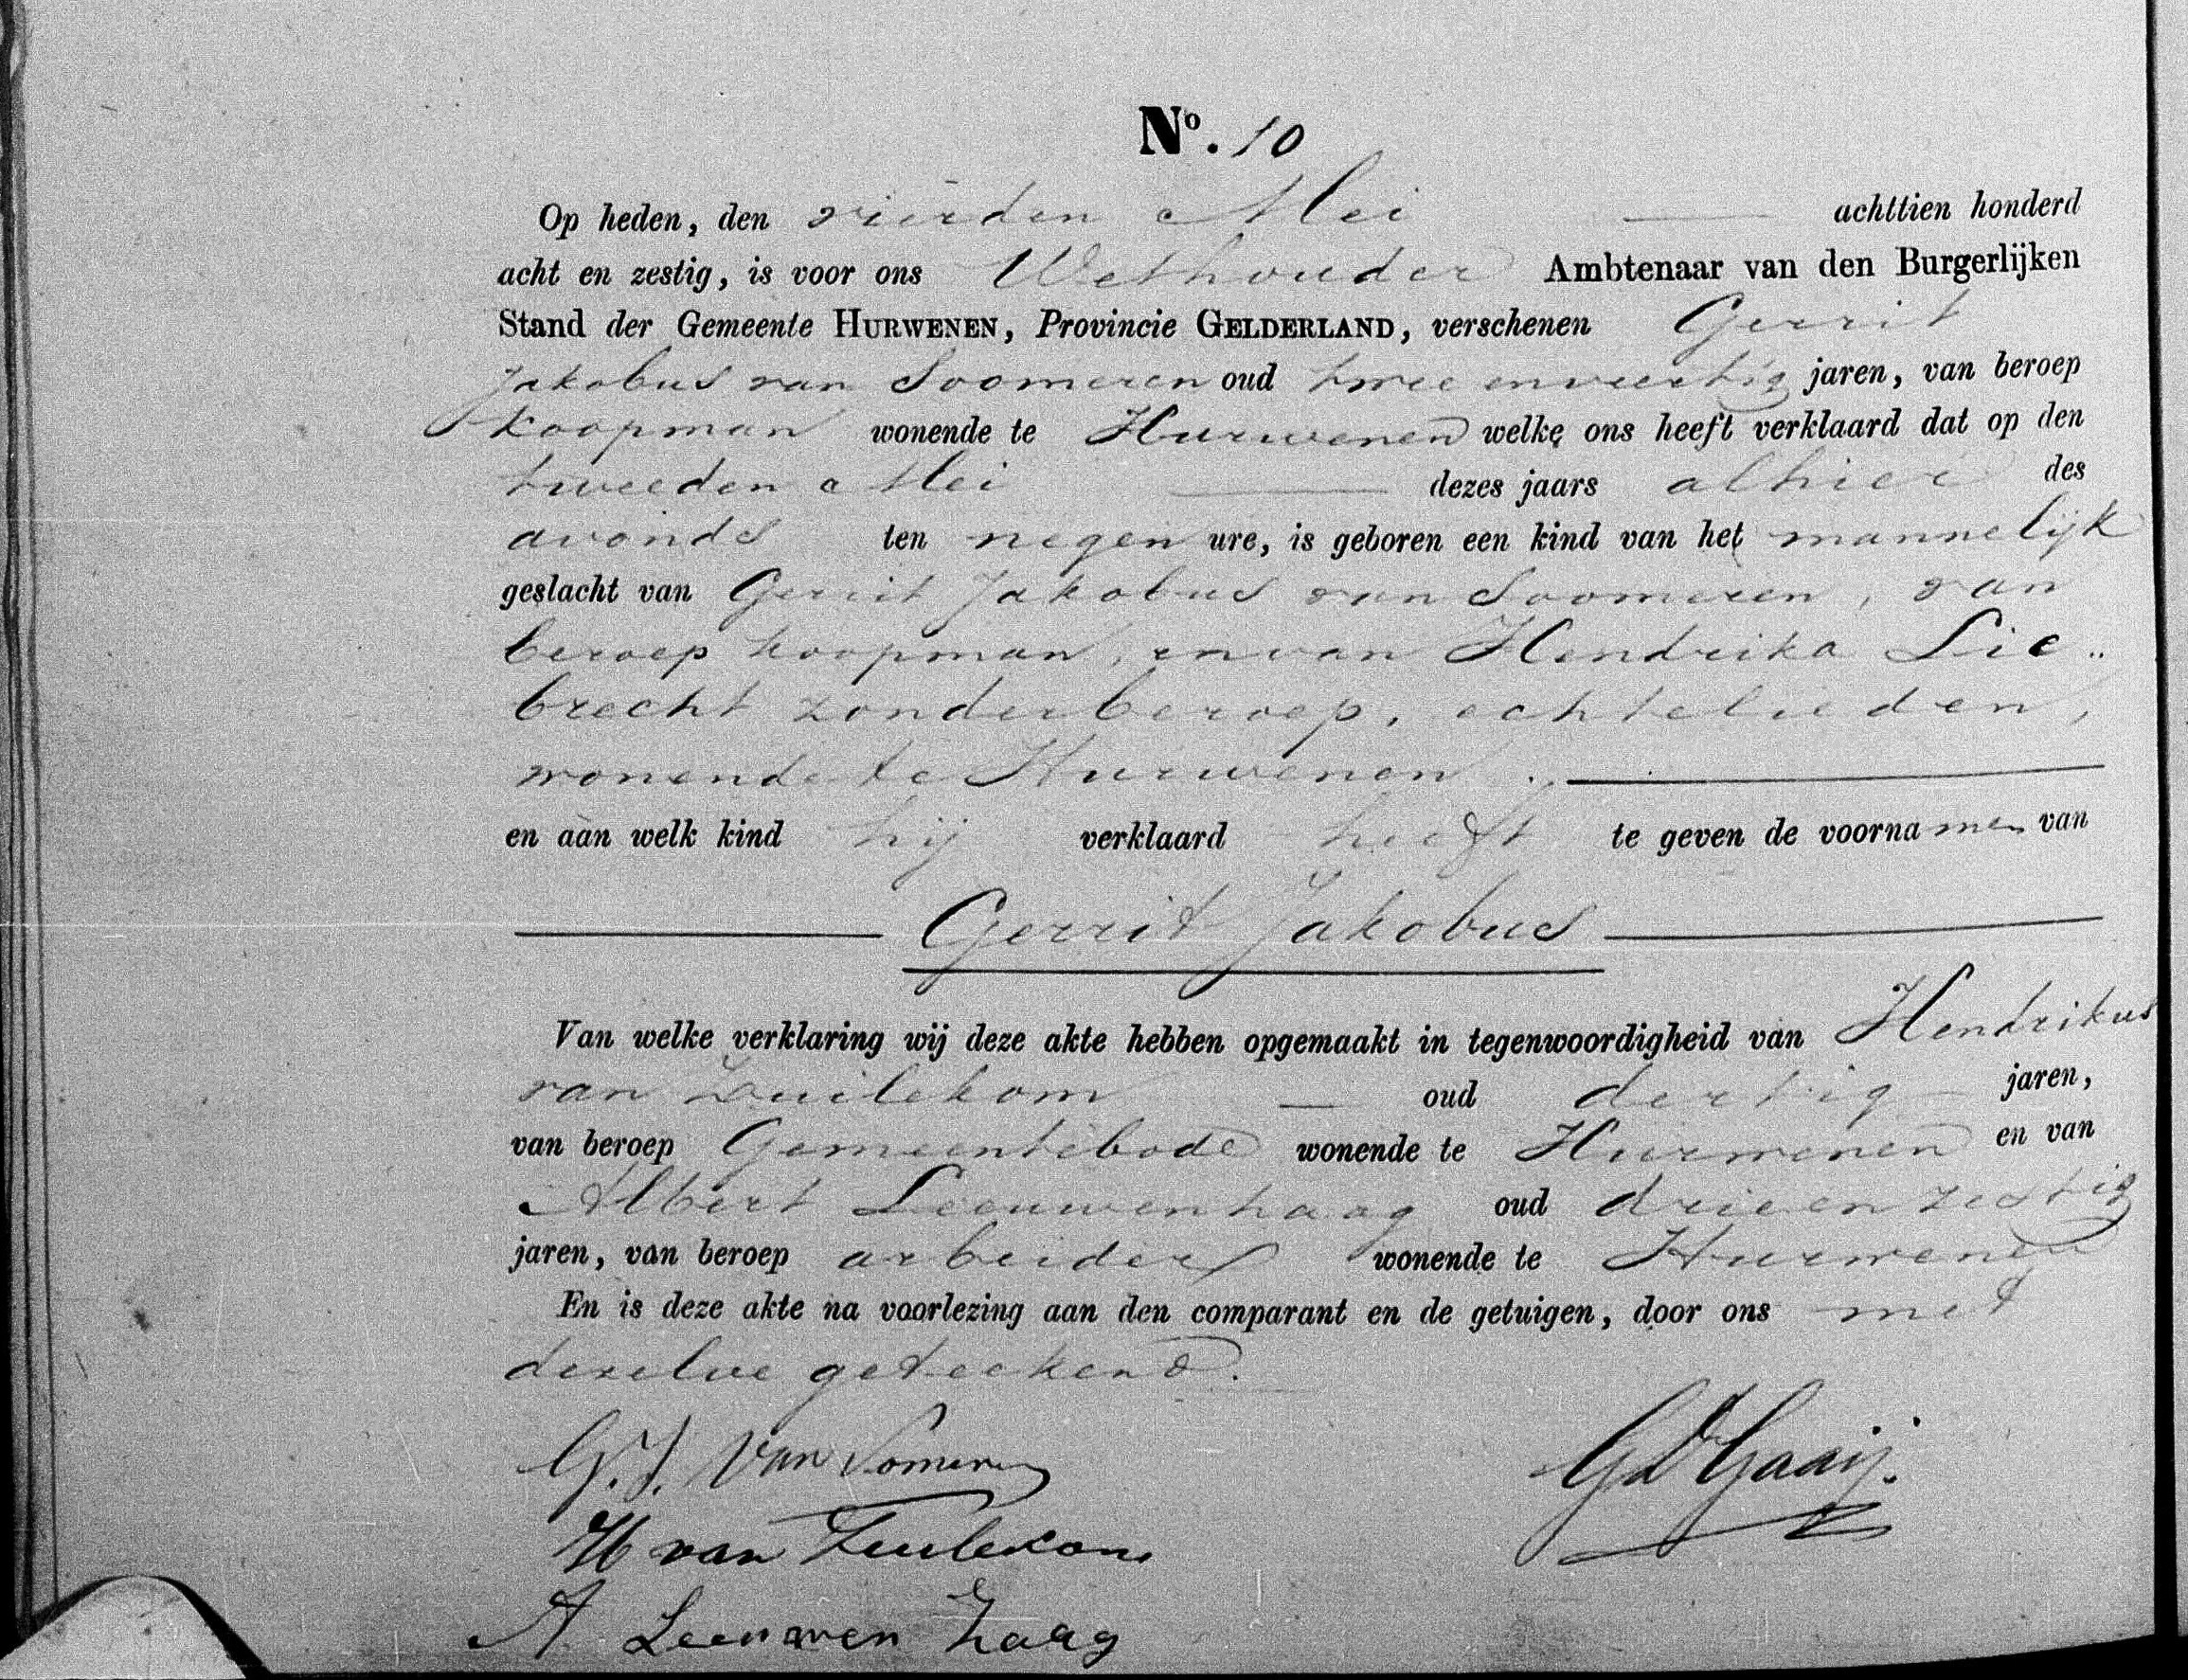 Nº. 10
Op heden, den vierden Mei achttien honderd
acht en zestig, is voor ons Wethouder Ambtenaar van den Burgerlijken
Stand der Gemeente HURWENEN, Provincie GELDERLAND, verschenen Gerrit
Jakobus van Soomeren oud twee en veertig jaren, van beroep
koopman wonende te Hurwenen welke ons heeft verklaard dat op den
tweeden Mei dezes jaars alhier des
avonds ten negen ure, is geboren een kind van het mannelijk
geslacht van Gerrit Jakobus van Soomeren, van
beroep koopman, en van Hendrika Lie„
brecht zonder beroep, echtelieden,
wonende te Hurwenen.
en aan welk kind hij verklaard heeft te geven de voornamen van
Gerrit Jakobus
Van welke verklaring wij deze akte hebben opgemaakt in tegenwoordigheid van Hendrikus
van Zuilekom oud dertig jaren,
van beroep Gemeentebode wonende te Hurwenen en van
Albert Leeuwenhaag oud drie en zestig
jaren, van beroep arbeider wonende te Hurwenen
En is deze akte na voorlezing aan den comparant en de getuigen, door ons met
dezelve geteekend.
G. J. van Someren
GD Gaaij.
H van Zuilekom
A Leeuwen haag